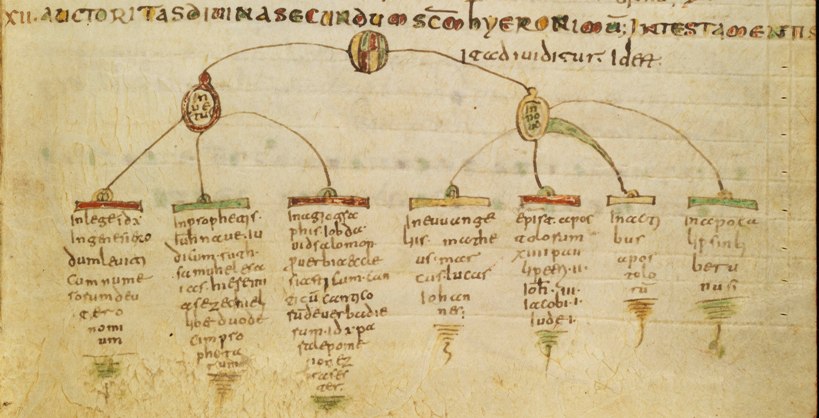 XII. AUCTORITAS DIVINA SECUNDUM SCM hYERONIMU; IN TESTAMENTIS
Ita dividitur. Id est.
IN
VE
TU
IN
NO
VO
In lege id
In genesi exo
dum leviti
cum nume
sorum deu
tero
nomi
um
In prophetis.
Iudi
cum. ruth.
samuhel esa
ias hieremi
as ezechiel
libe duode
cim pro
pheta
rum
In agiogra
phis. Iob da
vid salomon
proverbia eccle
siasti
canticu cantico
verba die
rum. id pa
ralepome
non ez
ras es
ter.
In euuange
liis. mathe
us. mar
cus lucas
Iohan
nes;
Epist. apos
tolorum
XIIII pau
li petri. II.
Ioh. III.
Iacobi. I.
Iude. I.
In acti
bus
apos
tolo
ru
In apoca
lipsin li
ber u
nus